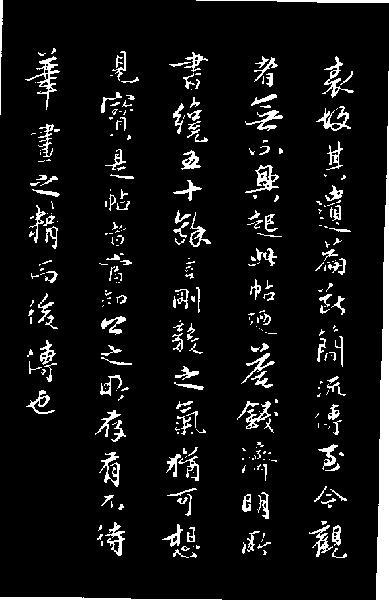 表好其遺篇斷簡流傳至今觀
者無不興起此帖迺蔡錢濟明所
書纔五十餘言剛毅之氣猶可想
見寶是帖者當知公之所存有不待
華畫之精而後傳也